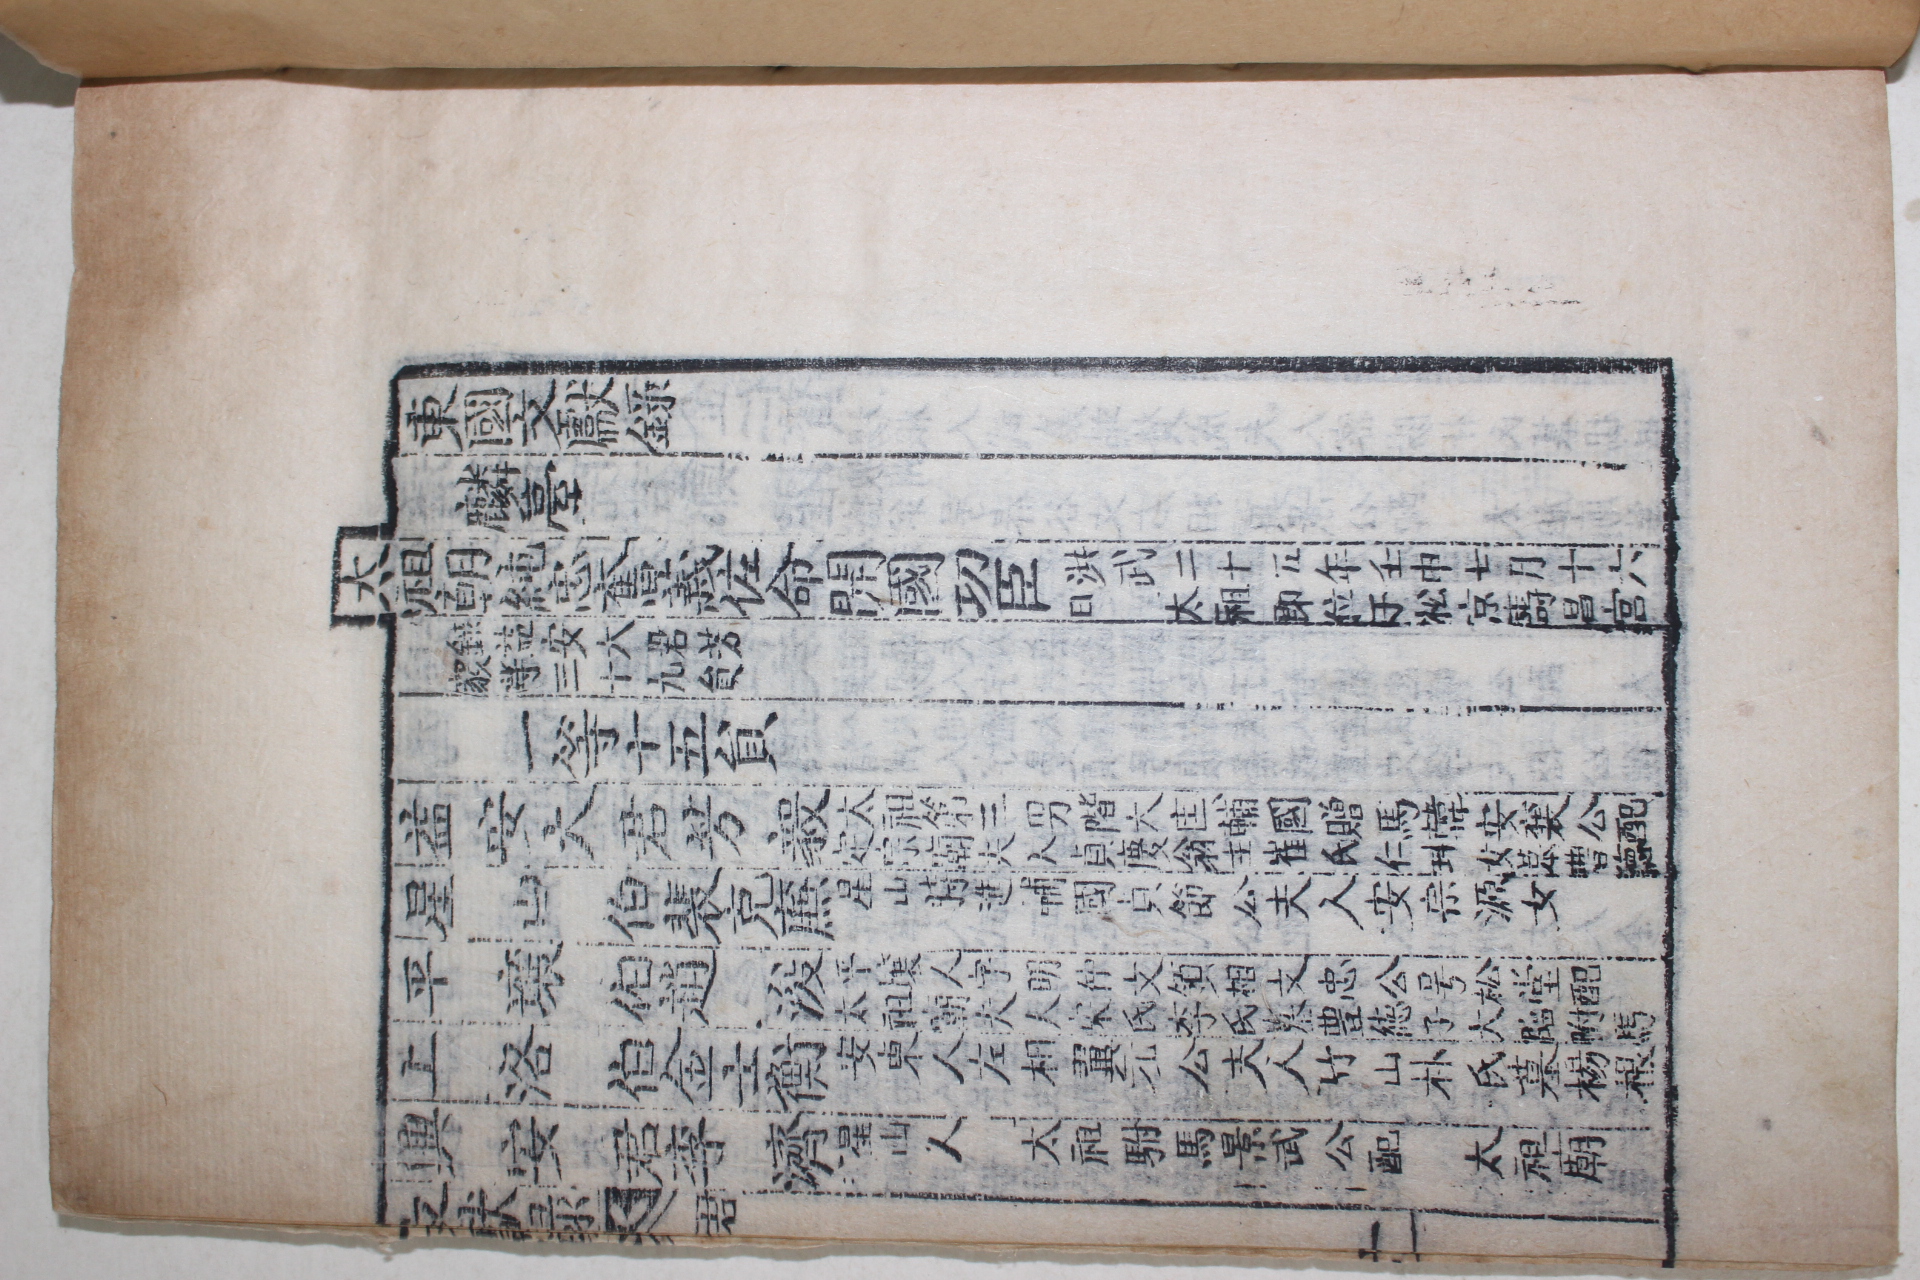 東國文獻錄
麟臺
太祖朝純忠奮義佐命開國功臣
洪武二十五年壬申七月十六
日 太祖卽位于松京壽昌宮
錄益安大君芳
毅等三十九貟
一等十五貟
益安大君芳毅
太祖第三男階大匡輔國贈馬韓安襄公配
定宗廟夫人貞慶翁主崔氏仁㺶女墓豊德
星山伯裴克廉
星山人特進輔國貞節公夫人安宗源女
平壤伯趙浚
平壤人字明仲文領相文忠公号松堂配
太祖廟夫人宋氏李氏墓豊德子大臨附馬
上洛伯金士衡
安東人左相翼元公夫人竹山朴氏墓楊根
興安君李濟
星山人 太祖駙馬景武公配 太祖廟
文獻錄 君
十一